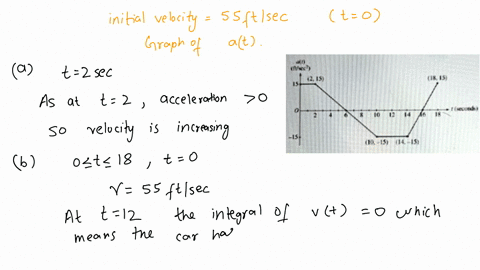 initial velocity = 55 ft/sec (t=0)
Graph of a(t).
(a) t=2 sec
As at t=2, acceleration >0
So velocity is increasing
(b) 0≤t≤18, t=0
v= 55 ft/sec
At t=12 the integral of v(t) =0 which
means the car ha
a(t)
(ft/sec²)
15
(2, 15)
(18, 15)
0
2 4 6 8 10 12 14 16 18
t (seconds)
-15
(10, -15) (14, -15)